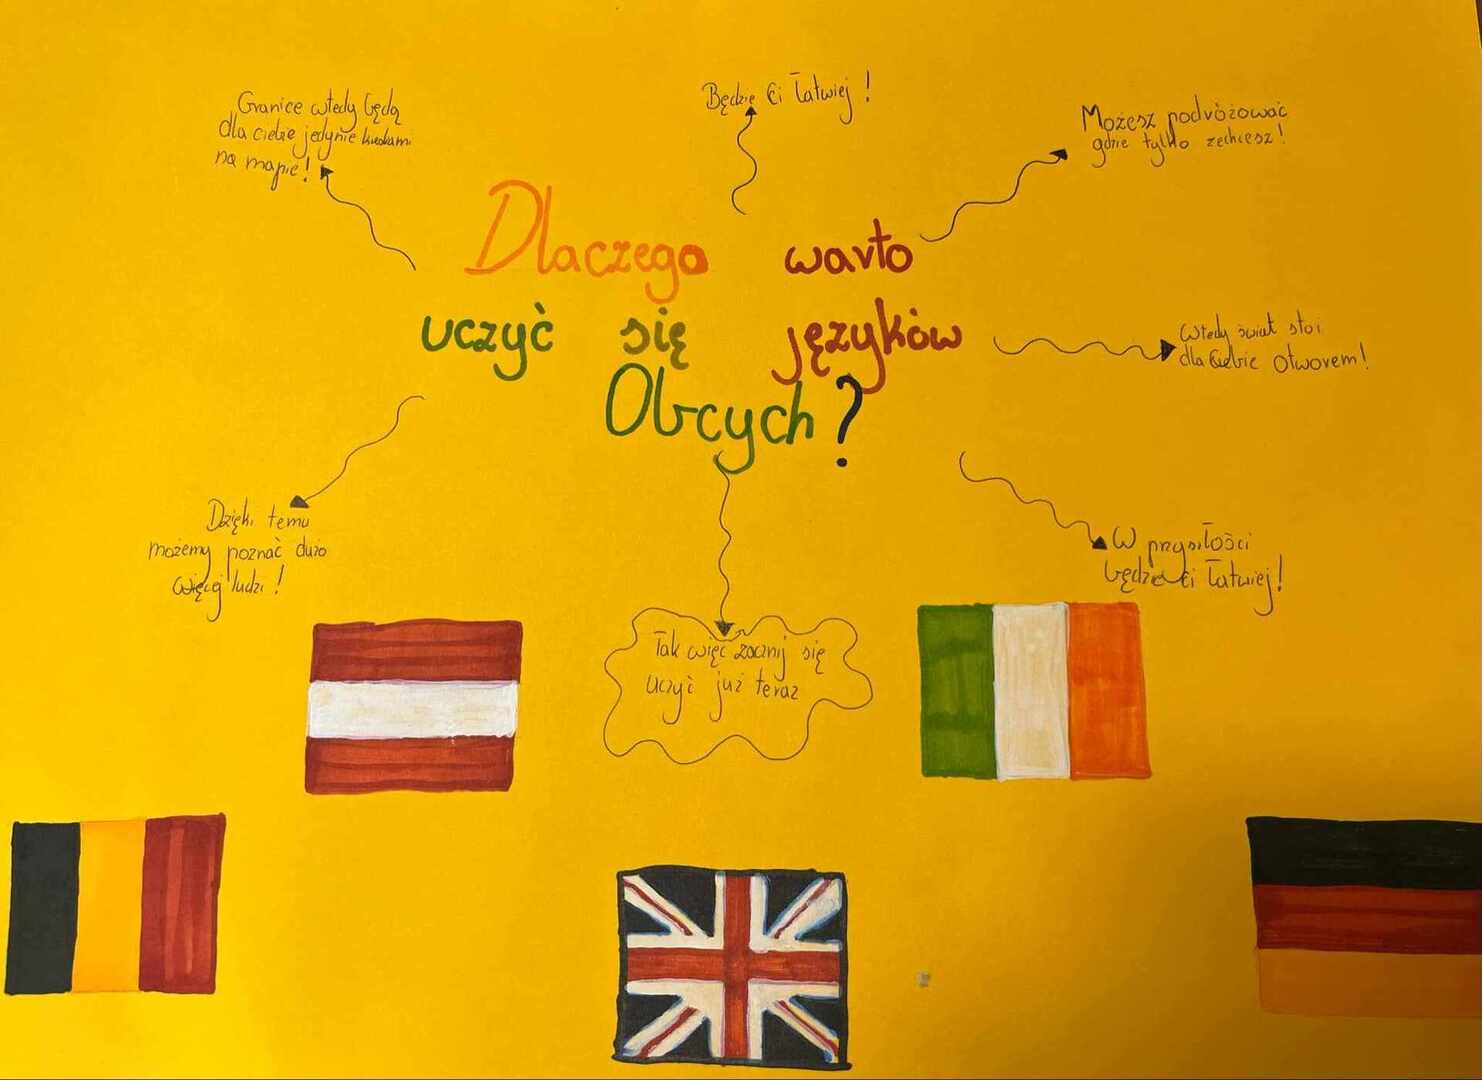 Dlaczego warto
uczyć się języków
Obcych?
Granice wtedy będą
dla ciebie jedynie kreskami
na mapie!
Będzie Ci łatwiej!
Możesz podróżować
gdzie tylko zechcesz!
Wtedy świat stoi
dla Ciebie otworem!
W przyszłości
będzie Ci łatwiej!
Tak więc zacznij się
uczyć już teraz
Dzięki temu
możemy poznać dużo
więcej ludzi!